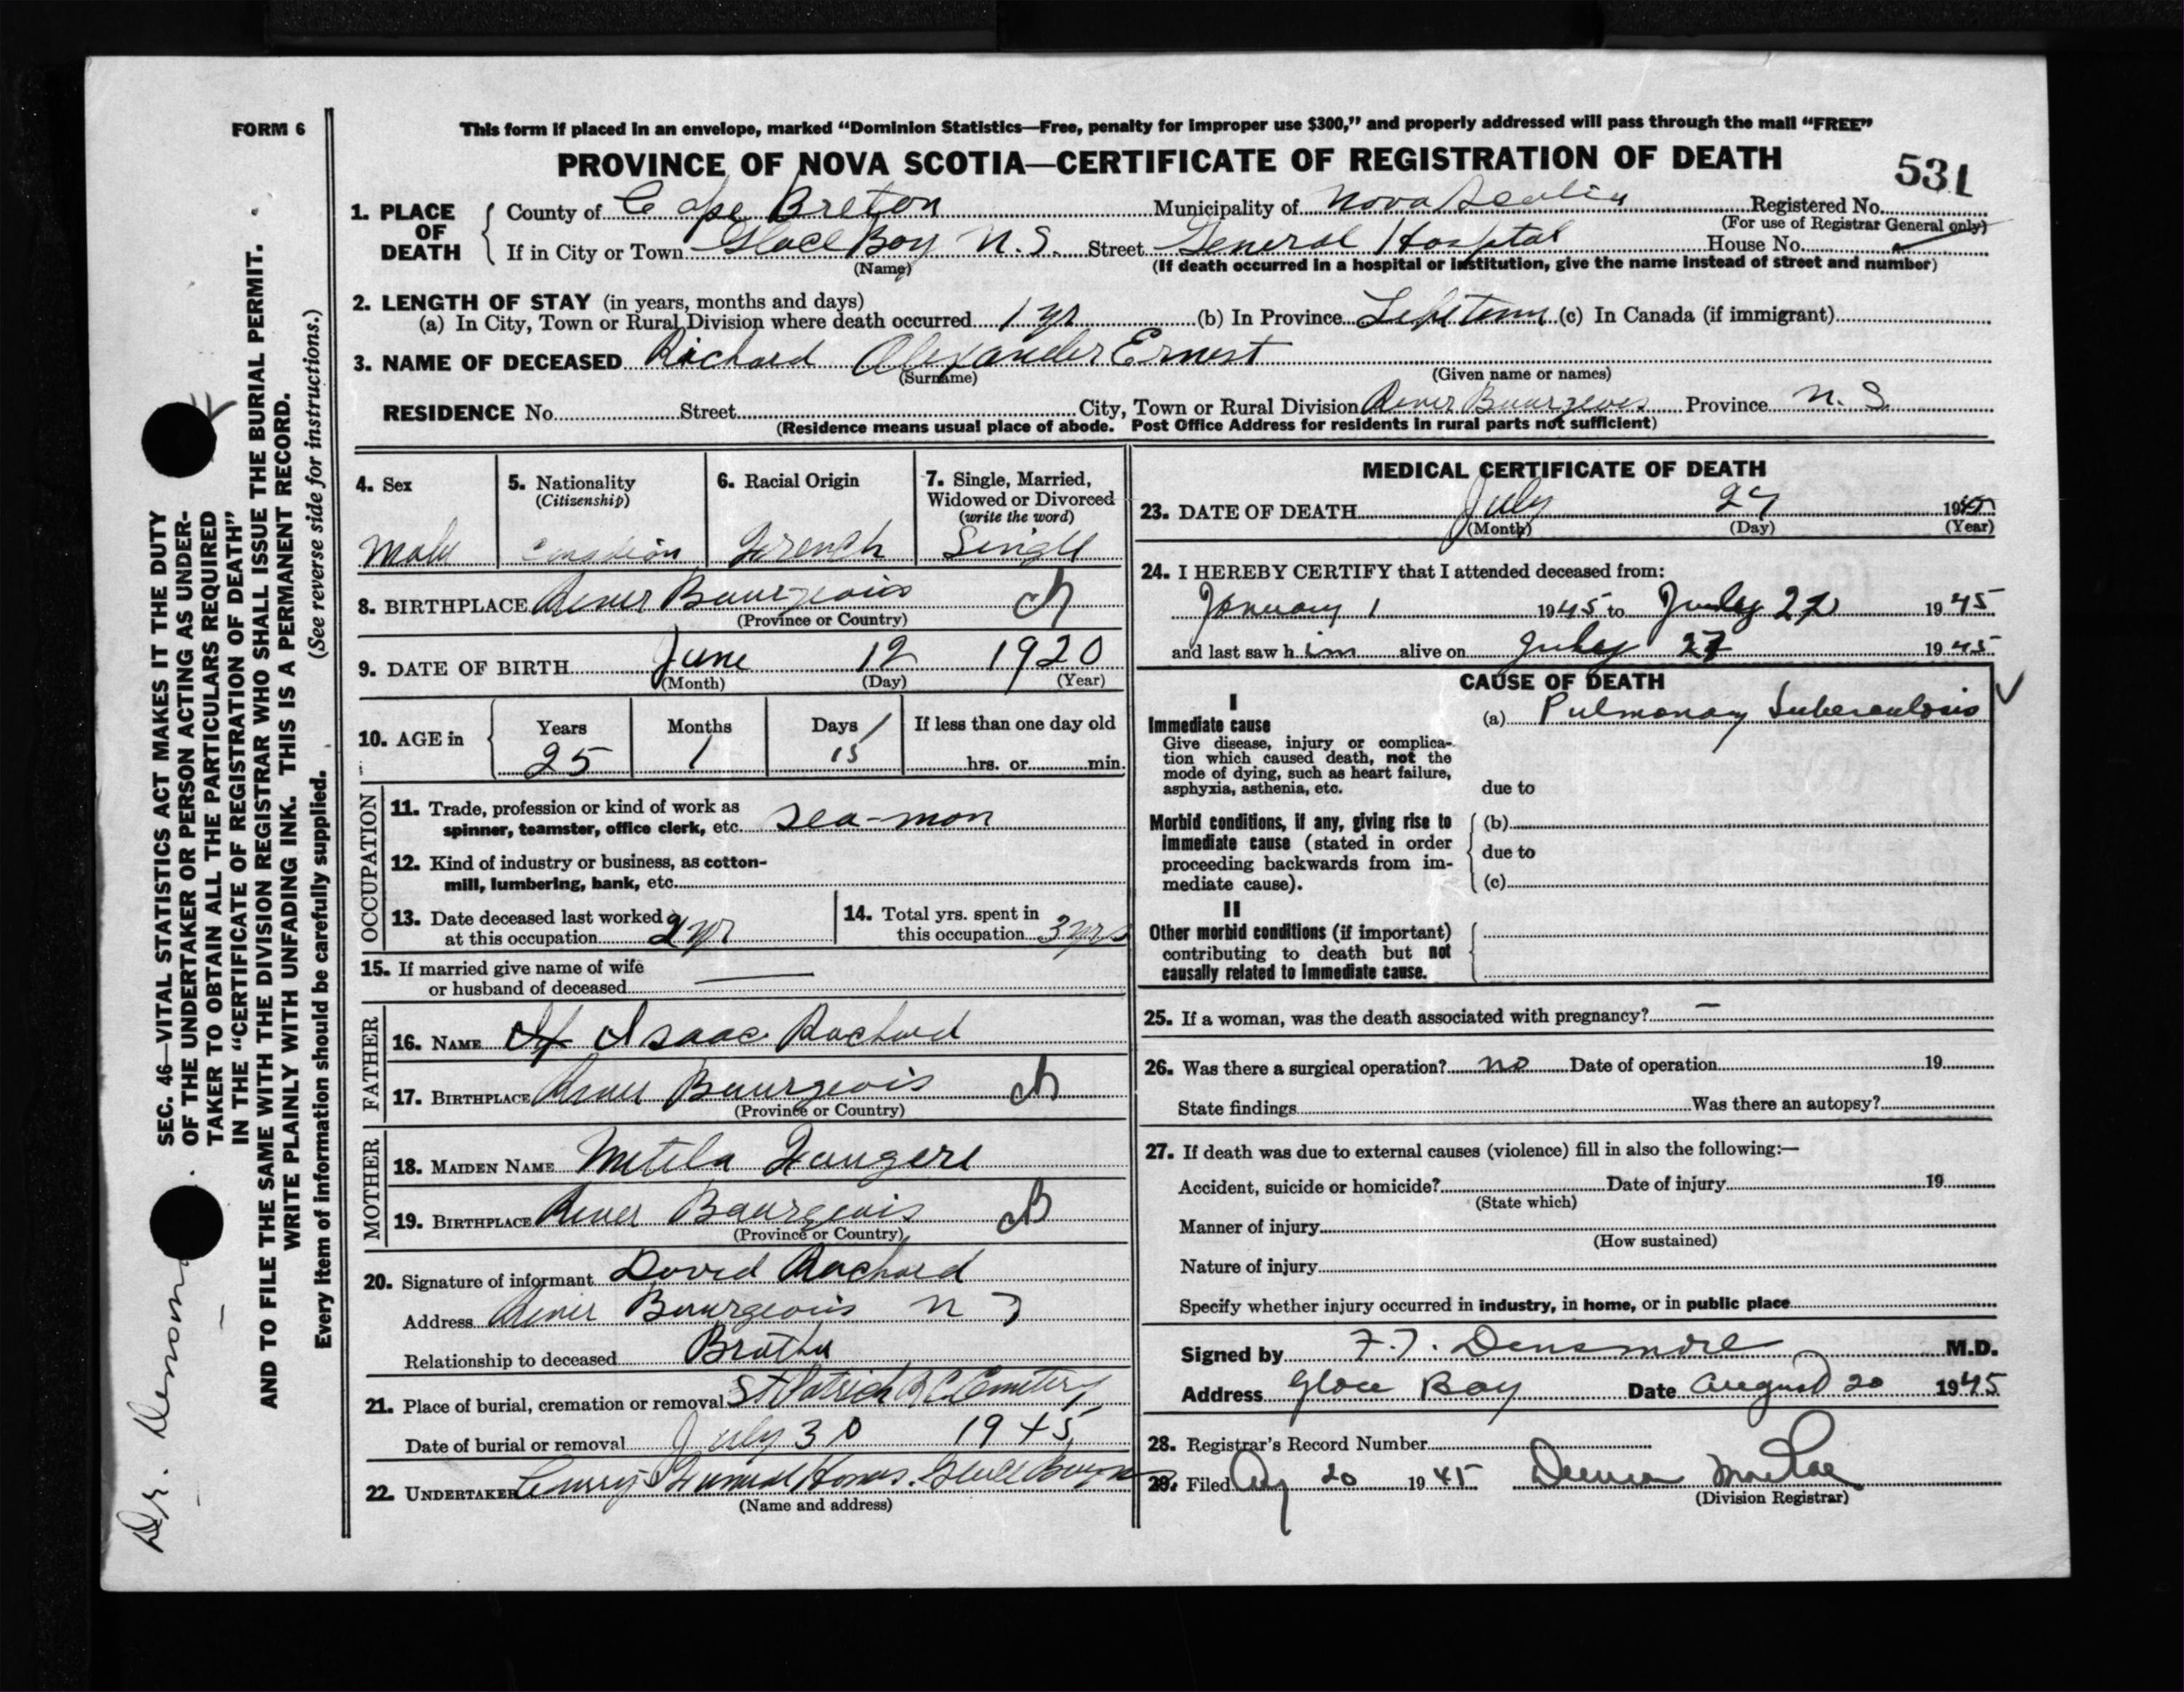 FORM 6
This form if placed in an envelope, marked “Dominion Statistics—Free, penalty for improper use $300,” and properly addressed will pass through the mail “FREE”
PROVINCE OF NOVA SCOTIA—CERTIFICATE OF REGISTRATION OF DEATH
531
1. PLACE OF DEATH
County of Cape Breton Municipality of Nova Scotia Registered No.
(For use of Registrar General only)
If in City or Town Glace Bay N.S. Street General Hospital House No.
(Name) (If death occurred in a hospital or institution, give the name instead of street and number)
2. LENGTH OF STAY (in years, months and days)
(a) In City, Town or Rural Division where death occurred 1 yr (b) In Province Lifetime (c) In Canada (if immigrant)
3. NAME OF DECEASED Richard Alexander Ernest
(Surname) (Given name or names)
RESIDENCE No. Street City, Town or Rural Division River Bourgeois Province N. S.
(Residence means usual place of abode. Post Office Address for residents in rural parts not sufficient)
4. Sex
Male
5. Nationality
(Citizenship)
Canadian
6. Racial Origin
French
7. Single, Married,
Widowed or Divorced
(write the word)
Single
8. BIRTHPLACE River Bourgeois
(Province or Country)
9. DATE OF BIRTH June 12 1920
(Month) (Day) (Year)
10. AGE in
Years Months Days If less than one day old
25 1 15 hrs. or min.
OCCUPATION
11. Trade, profession or kind of work as
spinner, teamster, office clerk, etc. Sea-man
12. Kind of industry or business, as cotton-
mill, lumbering, bank, etc.
13. Date deceased last worked
at this occupation 2 yr
14. Total yrs. spent in
this occupation 3 yrs
15. If married give name of wife
or husband of deceased
FATHER
16. NAME Isaac Richard
17. BIRTHPLACE River Bourgeois
(Province or Country)
MOTHER
18. MAIDEN NAME Metila Fougere
19. BIRTHPLACE River Bourgeois
(Province or Country)
20. Signature of informant David Richard
Address River Bourgeois N S
Relationship to deceased Brother
21. Place of burial, cremation or removal St Patrick R C Cemetery
Date of burial or removal July 30 1945
22. UNDERTAKER Curry's Funeral Home. Glace Bay
(Name and address)
MEDICAL CERTIFICATE OF DEATH
23. DATE OF DEATH July 27 1945
(Month) (Day) (Year)
24. I HEREBY CERTIFY that I attended deceased from:
January 1 1945 to July 27 1945
and last saw him alive on July 27 1945
CAUSE OF DEATH
I
Immediate cause
Give disease, injury or complica-
tion which caused death, not the
mode of dying, such as heart failure,
asphyxia, asthenia, etc.
(a) Pulmonary Tuberculosis
due to
Morbid conditions, if any, giving rise to
immediate cause (stated in order
proceeding backwards from im-
mediate cause).
(b)
due to
(c)
II
Other morbid conditions (if important)
contributing to death but not
causally related to immediate cause.
25. If a woman, was the death associated with pregnancy? –
26. Was there a surgical operation? no Date of operation 19
State findings Was there an autopsy?
27. If death was due to external causes (violence) fill in also the following:—
Accident, suicide or homicide? Date of injury 19
(State which)
Manner of injury
(How sustained)
Nature of injury
Specify whether injury occurred in industry, in home, or in public place
Signed by F. T. Densmore M.D.
Address Glace Bay Date August 20 1945
28. Registrar's Record Number
29. Filed Aug 20 1945
(Division Registrar)
SEC. 46—VITAL STATISTICS ACT MAKES IT THE DUTY
OF THE UNDERTAKER OR PERSON ACTING AS UNDER-
TAKER TO OBTAIN ALL THE PARTICULARS REQUIRED
IN THE “CERTIFICATE OF REGISTRATION OF DEATH”
AND TO FILE THE SAME WITH THE DIVISION REGISTRAR WHO SHALL ISSUE THE BURIAL PERMIT.
WRITE PLAINLY WITH UNFADING INK. THIS IS A PERMANENT RECORD.
Every item of information should be carefully supplied. (See reverse side for instructions.)
Dr.